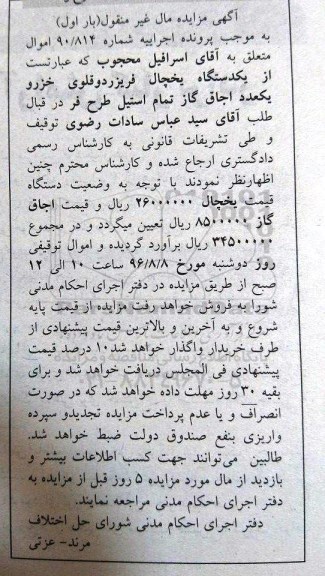 آگهی مزایده مال غیر منقول(بار اول)
به موجب پرونده اجراییه شماره ۹۰/۸۱۴ اموال
متعلق به آقای اسرافیل محجوب که عبارتست
از یکدستگاه یخچال فریزردوقلوی خزرو
یکعدد اجاق گاز تمام استیل طرح فر در قبال
طلب آقای سید عباس سادات رضوی توقیف
و طی تشریفات قانونی به کارشناس رسمی
دادگستری ارجاع شده و کارشناس محترم چنین
اظهارنظر نمودند با توجه به وضعیت دستگاه
قیمت یخچال ۲۶۰۰۰۰۰۰ ریال و قیمت اجاق
گاز ۸۵۰۰۰۰۰ ریال تعیین میگردد و در مجموع
۳۴۵۰۰۰۰۰ ریال برآورد گردیده و اموال توقیفی
روز دوشنبه مورخ ۹۶/۸/۸ ساعت ۱۰ الی ۱۲
صبح از طریق مزایده در دفتر اجرای احکام مدنی
شورا به فروش خواهد رفت مزایده از قیمت پایه
شروع و به آخرین و بالاترین قیمت پیشنهادی از
طرف خریدار واگذار خواهد شد۱۰ درصد قیمت
پیشنهادی فی المجلس دریافت خواهد شد و برای
بقیه ۳۰ روز مهلت داده خواهد شد که در صورت
انصراف و یا عدم پرداخت مزایده تجدیدو سپرده
واریزی بنفع صندوق دولت ضبط خواهد شد.
طالبین می‌توانند جهت کسب اطلاعات بیشتر و
بازدید از مال مورد مزایده ۵ روز قبل از مزایده به
دفتر اجرای احکام مدنی مراجعه نمایند.
دفتر اجرای احکام مدنی شورای حل اختلاف
مرند- عزتی